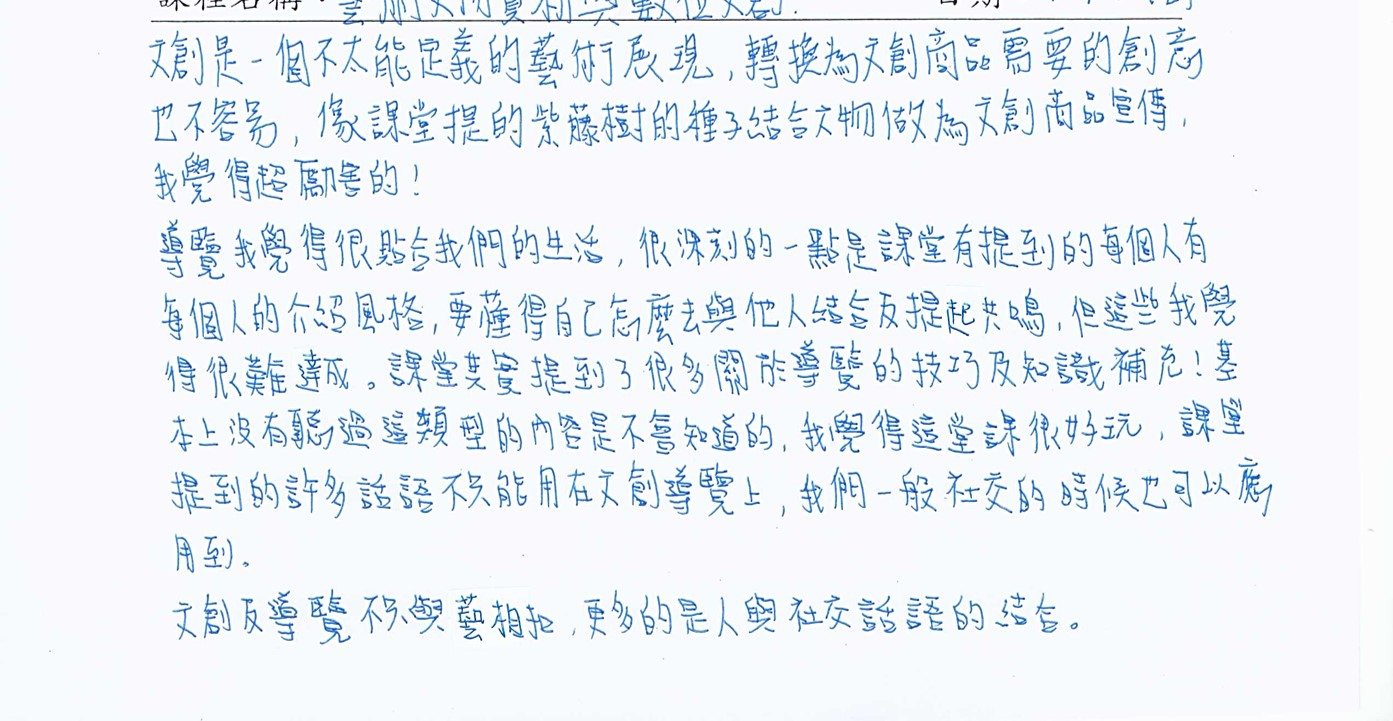 課程名稱：藝術文物賞析與數位文創
日期
文創是一個不太能定義的藝術展現，轉換為文創商品需要的創意
也不容易，像課堂提的紫藤樹的種子結合文物做為文創商品宣傳，
我覺得超勵害的！
導覽我覺得很貼合我們的生活，很深刻的一點是課堂有提到的每個人有
每個人的介紹風格，要懂得自己怎麼去與他人結合及提起共鳴，但這些我覺
得很難達成。課堂其實提到了很多關於導覽的技巧及知識補充！基
本上沒有聽過這類型的內容是不會知道的，我覺得這堂課很好玩，課堂
提到的許多話語不只能用在文創導覽上，我們一般社交的時候也可以應
用到。
文創及導覽不只與藝相扣，更多的是人與社交話語的結合。